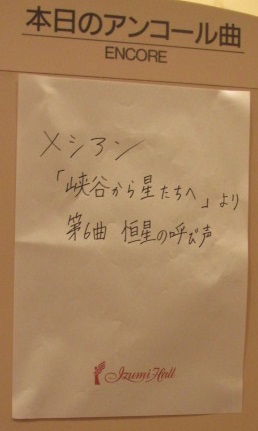 本日のアンコール曲
ENCORE
メシアン
「峡谷から星たちへ」より
第6曲 恒星の呼び声
Izumi Hall